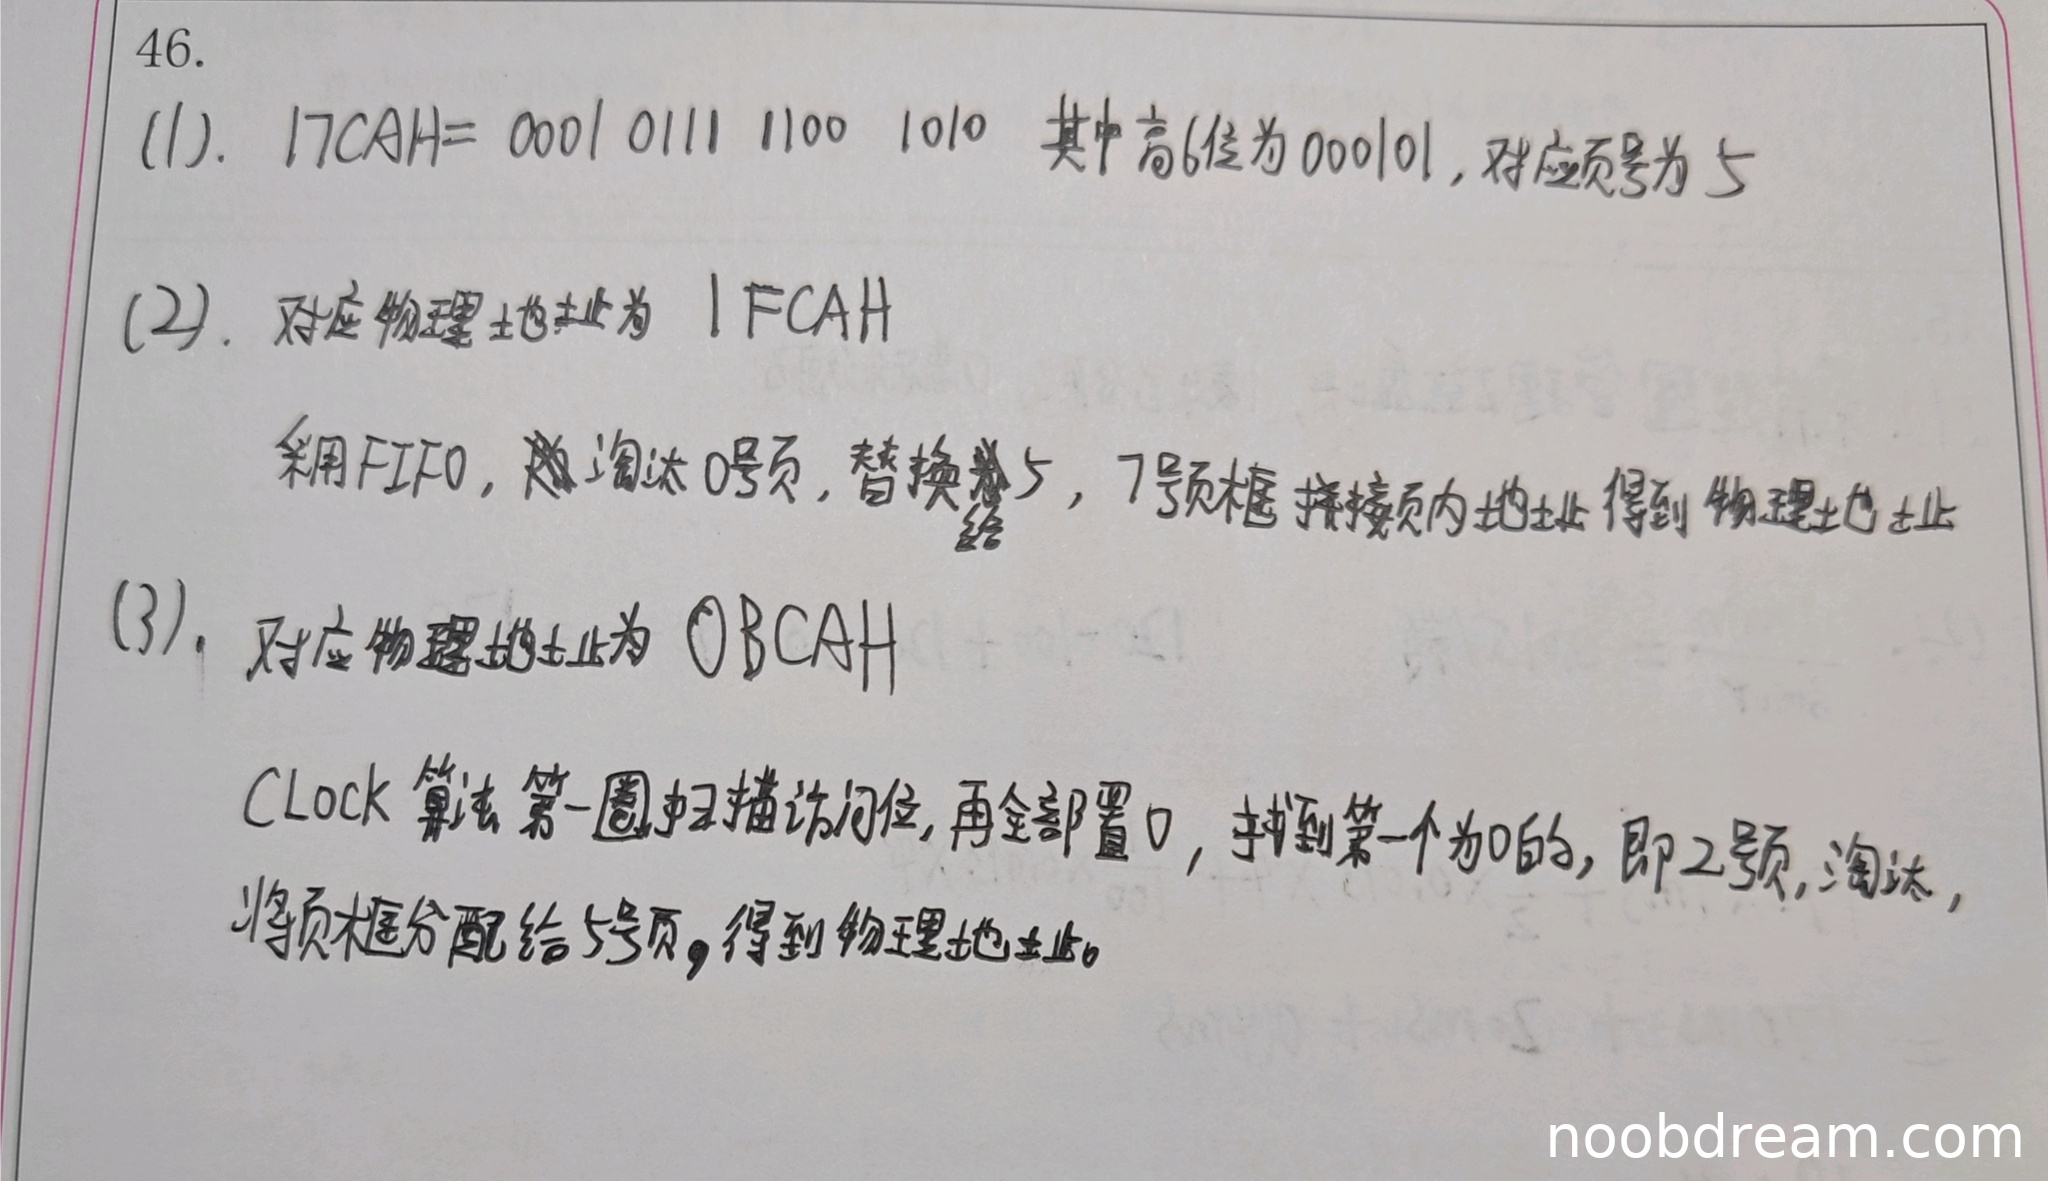 46.
(1). 17CAH= 0001 0111 1100 1010 其中高6位为000101, 对应页号为5
(2). 对应物理地址为 1FCAH
采用FIFO, 淘汰0号页, 替换给5, 7号页框拼接页内地址得到物理地址
(3). 对应物理地址为 0BCAH
CLock 算法第一圈扫描访问位, 再全部置0, 找到第一个为0的, 即2号页, 淘汰,
将页框分配给5号页, 得到物理地址。
noobdream.com